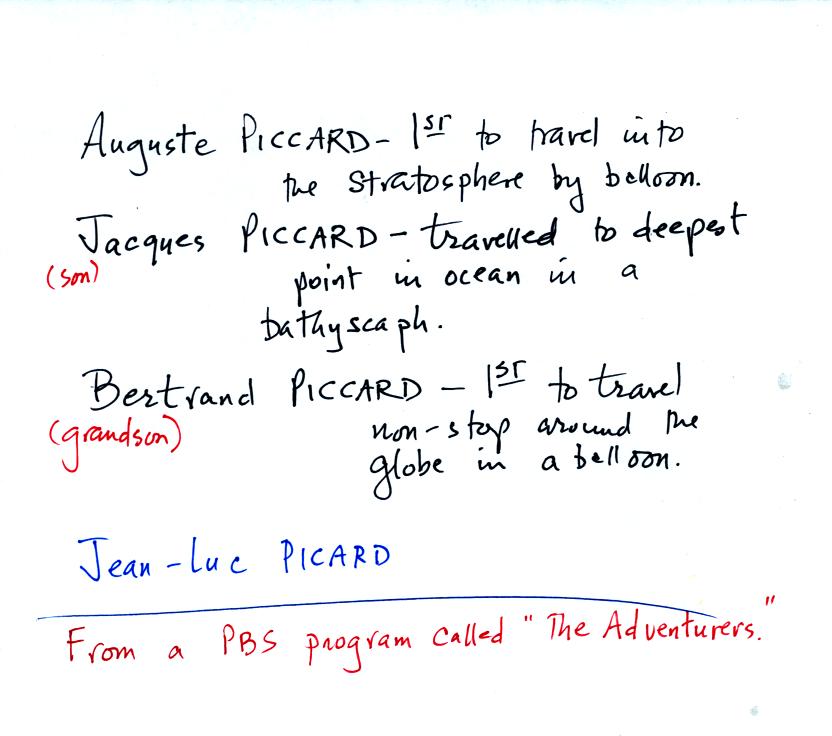 Auguste PICCARD - 1st to travel into
the stratosphere by balloon.
Jacques PICCARD - travelled to deepest
(son)
point in ocean in a
bathyscaph.
Bertrand PICCARD - 1st to travel
(grandson)
non-stop around the
globe in a balloon.
Jean-Luc PICARD
From a PBS program called "The Adventurers."